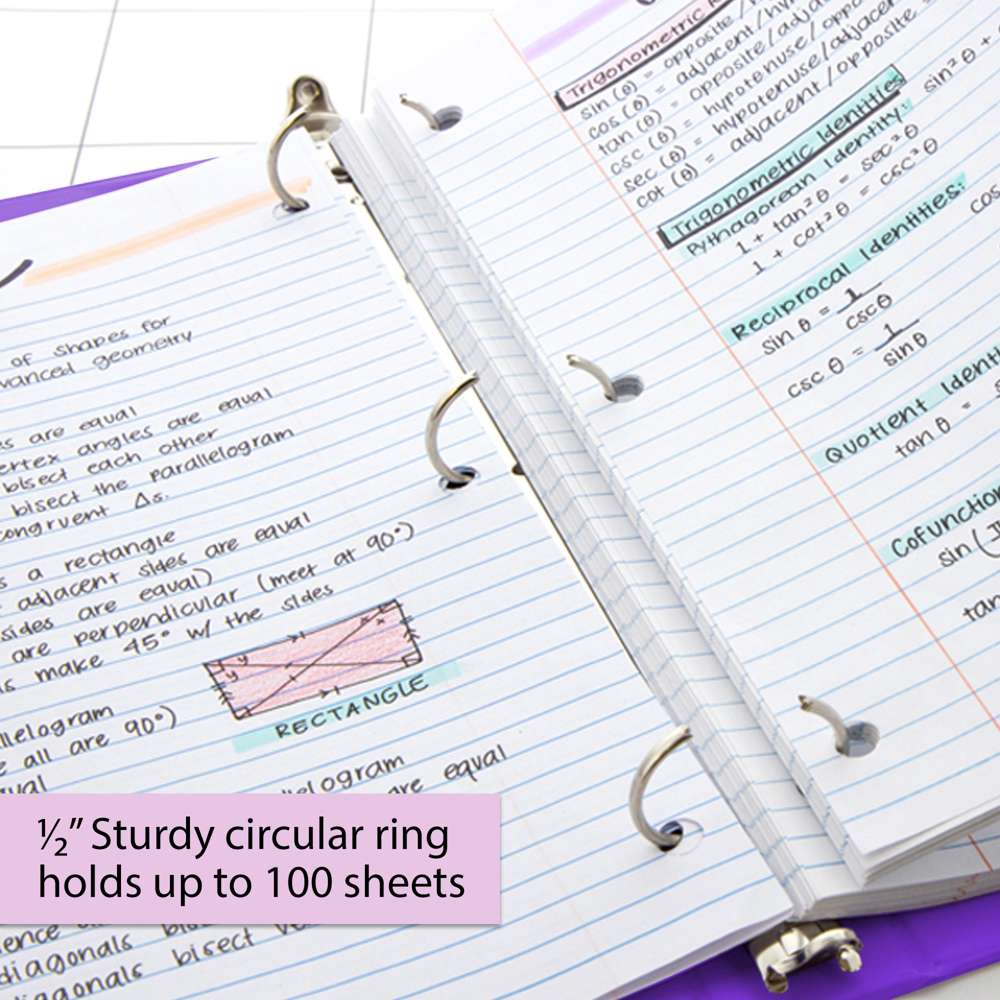 of shapes for
advanced geometry
are equal
vertex angles are equal
bisect each other
bisect the parallelogram
congruent Δs.
s a rectangle
adjacent sides are equal
sides are equal)
are perpendicular (meet at 90°)
make 45° w/ the sides
y y x x
RECTANGLE
parallelogram
all are 90°)
are equal
diagonals
diagonals bisect
Trigonometric
sin (θ) = opposite/
cos (θ) = adjacent/hy
tan (θ) = opposite/adja
csc (θ) = hypotenuse/oppo
sec (θ) = hypotenuse/adjacen
cot (θ) = adjacent/opposite
Trigonometric Identities
Pythagorean Identity:
sin² θ +
1 + tan² θ = sec² θ
1 + cot² θ = csc² θ
Reciprocal Identities:
sin θ = 1
cscθ
cos
csc θ = 1
sinθ
Quotient Identi
tan θ =
Cofunction
sin (
tan
½” Sturdy circular ring
holds up to 100 sheets